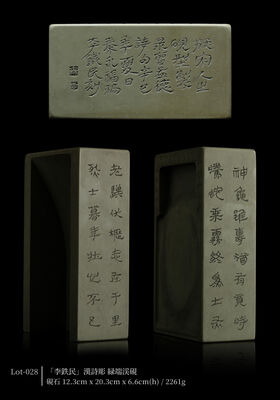 詩句辛巳
季夏日
李鐵民刻
神龜雖壽猶有竟時
騰蛇乘霧終為土灰
老驥伏櫪志在千里
烈士暮年壯心不已
Lot-028
「李鉄民」漢詩彫 緑端渓硯
硯石 12.3cm x 20.3cm x 6.6cm(h) / 2261g